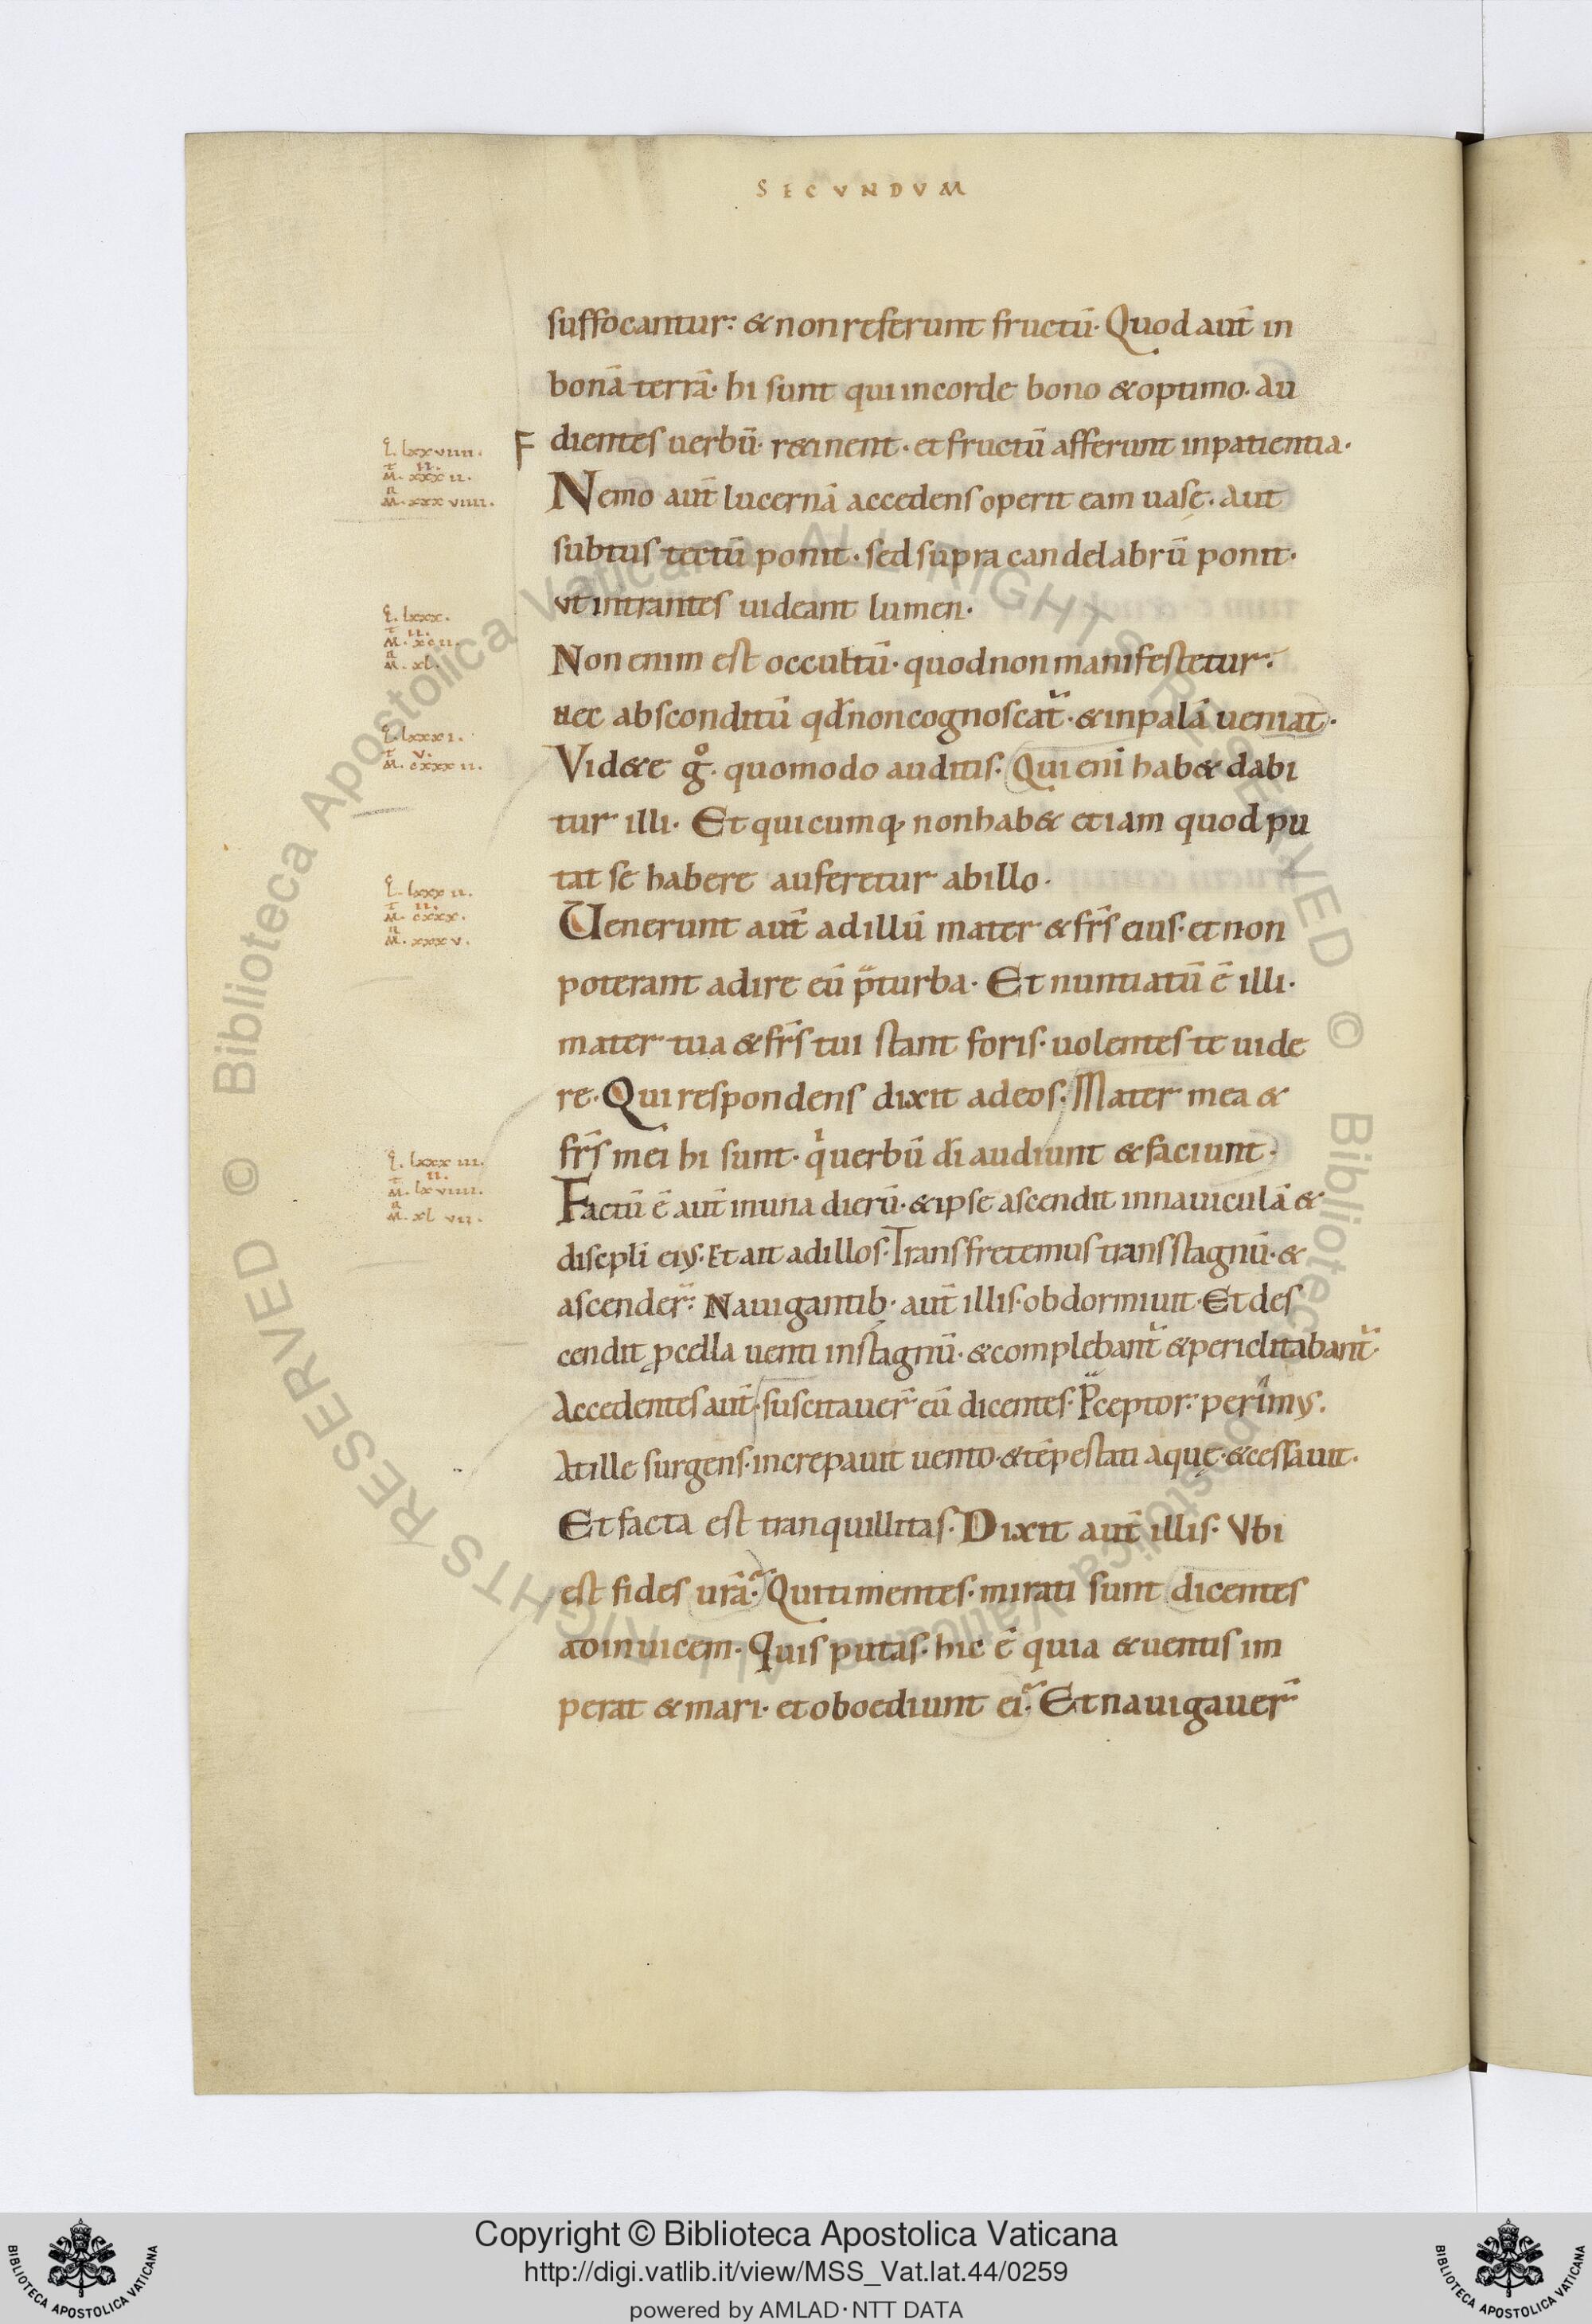 SECVNDVM
suffocantur: & non referunt fructū. Quod aut̄ in
bonā terrā. hi sunt qui in corde bono & optimo. au
F dientes uerbū. r&inent. et fructū afferunt in patientia.
L. lxxviiii.
II.
M. xxxII.
M. xxxviiii.
Nemo aut̄ lucernā accedens operit eam uasę. Aut
subtus tectū ponit. sed supra candelabrū ponit.
vt intrantes uideant lumen.
L. lxxx.
II.
M. xcII.
M. xl.
Non enim est occultū. quod non manifestetur:
nec absconditū qd̄ non cognoscat̄. & in palā ueniat.
L. lxxxI.
V.
M. cxxxII.
Vid&e g̊. quomodo auditis. Qui eni hab& dabi
tur illi. Et quicumq; non hab& etiam quod pu
tat se habere auferetur ab illo.
L. lxxxII.
II.
M. cxxx.
M. xxxv.
Uenerunt aut̄ ad illū mater & frs̄ eius. et non
poterant adire eū p̄ turba. Et nuntiatū ē illi.
mater tua & frs̄ tui stant foris. uolentes te uide
re. Qui respondens dixit ad eos. Mater mea &
frs̄ mei hi sunt. qi uerbū dī audiunt & faciunt.
L. lxxxIII.
II.
M. lxviiii.
M. xlvII.
Factū ē aut̄ in una dierū. & ipse ascendit in nauiculā &
discpli eiꝰ. Et ait ad illos. Transfretemus trans stagnū. &
ascender̄: Nauigantib; aut̄ illis. obdormiuit. Et des
cendit ꝓcella uenti in stagnū. & complebant̄ & periclitabant̄.
Accedentes aut̄. suscitauer̄ eū dicentes. P̄ceptor: perimꝰ.
At ille surgens. increpauit uento. & tēpestati aquę. & cessauit.
Et facta est tranquillitas. Dixit aut̄ illis. Vbi
est fides urā? Qui timentes. mirati sunt dicentes
ad inuicem. Quis putas. hic ē quia & uentis im
perat & mari. et oboediunt ei? Et nauigauer̄
© Biblioteca Apostolica Vaticana ALL RIGHTS RESERVED © Biblioteca Apostolica Vaticana ALL RIGHTS RESERVED
BIBLIOTECA APOSTOLICA VATICANA
Copyright © Biblioteca Apostolica Vaticana
http://digi.vatlib.it/view/MSS_Vat.lat.44/0259
powered by AMLAD·NTT DATA
BIBLIOTECA APOSTOLICA VATICANA